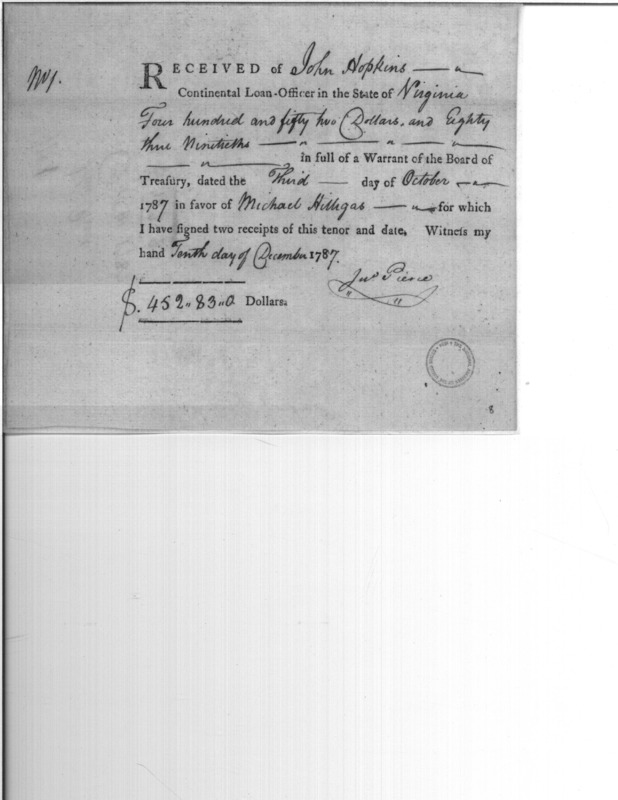 No 1.
RECEIVED of John Hopkins
Continental Loan-Officer in the State of Virginia
Four hundred and fifty two Dollars, and Eighty
three Ninetieths
in full of a Warrant of the Board of
Treasury, dated the Third day of October
1787 in favor of Michael Hillegas for which
I have signed two receipts of this tenor and date. Witness my
hand Tenth day of December 1787.
Jno Pierce
$. 452 " 83 " 0 Dollars.
8